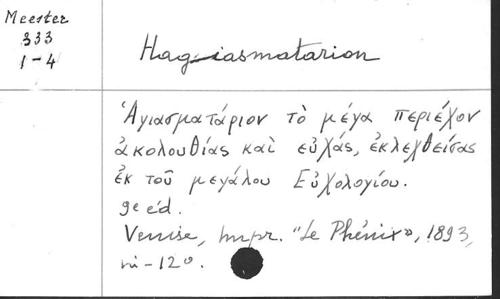 Meester
333
1-4
Hagiasmatarion
Ἁγιασματάριον τὸ μέγα περιέχον
ἀκολουθίας καὶ εὐχάς, ἐκλεχθείσας
ἐκ τοῦ μεγάλου Εὐχολογίου.
9e éd.
Venise, Impr. "Le Phénix», 1893,
in-12°.